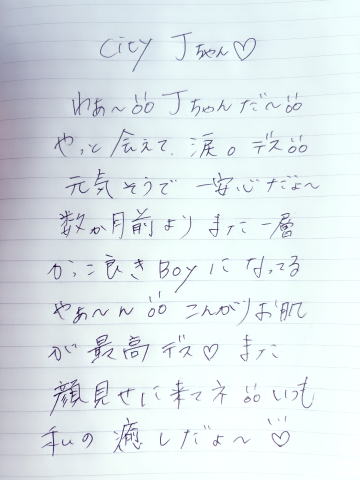 city Jちゃん♡
わぁ〜!!Jちゃんだ〜!!
やっと会えて、涙。デス!!
元気そうで 一安心だょ〜
数か月前より また一層
かっこ良きBoyになってる
やぁ〜ん!!こんがりお肌
が最高デス♡また
顔見せに来てネ!!いつも
私の癒しだょ〜♡